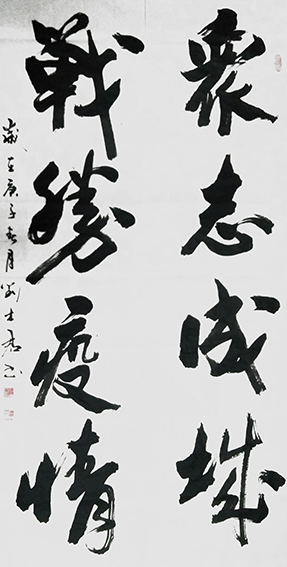 衆志成城
戰勝疫情
歲在庚子春月劉士君書